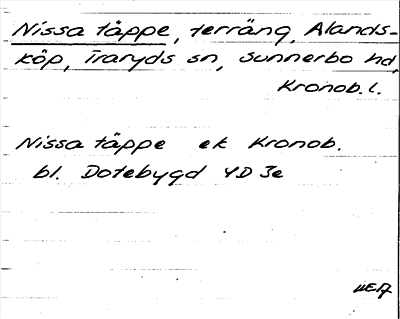 Nissa täppe, terräng, Alands-
köp, Traryds sn, Sunnerbo hd,
Kronob. l.
Nissa täppe ek Kronob.
bl. Dotebygd YD 3e